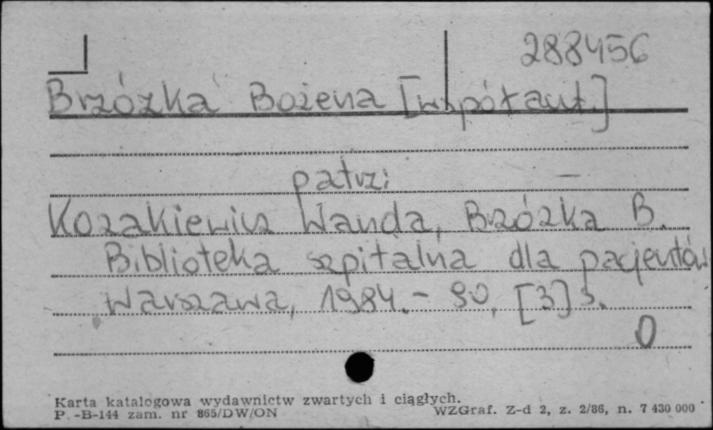 288456
Brzózka Bożena [współaut.]
patrz:
Kozakiewicz Wanda, Brzózka B.
Biblioteka szpitalna dla pacjentów
Warszawa, 1984.- 90, [3] s.
0
Karta katalogowa wydawnictw zwartych i ciągłych.
P. -B-144 zam. nr 865/DW/ON WZGraf. Z-d 2, z. 2/86, n. 7 430 000